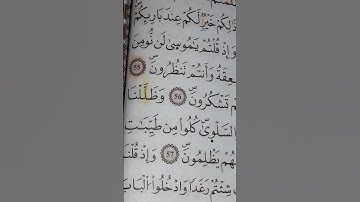 ذَٰلِكُمْ خَيْرٌ لَّكُمْ عِندَ بَارِئِكُمْ
وَإِذْ قُلْتُمْ يَٰمُوسَىٰ لَن نُّؤْمِنَ
عِقَةُ وَأَنتُمْ تَنظُرُونَ 55
مْ تَشْكُرُونَ 56 وَظَلَّلْنَا
السَّلْوَىٰ كُلُوا۟ مِن طَيِّبَٰتِ
هُمْ يَظْلِمُونَ 57 وَإِذْ قُلْنَا
شِئْتُمْ رَغَدًا وَادْخُلُوا۟ الْبَابَ